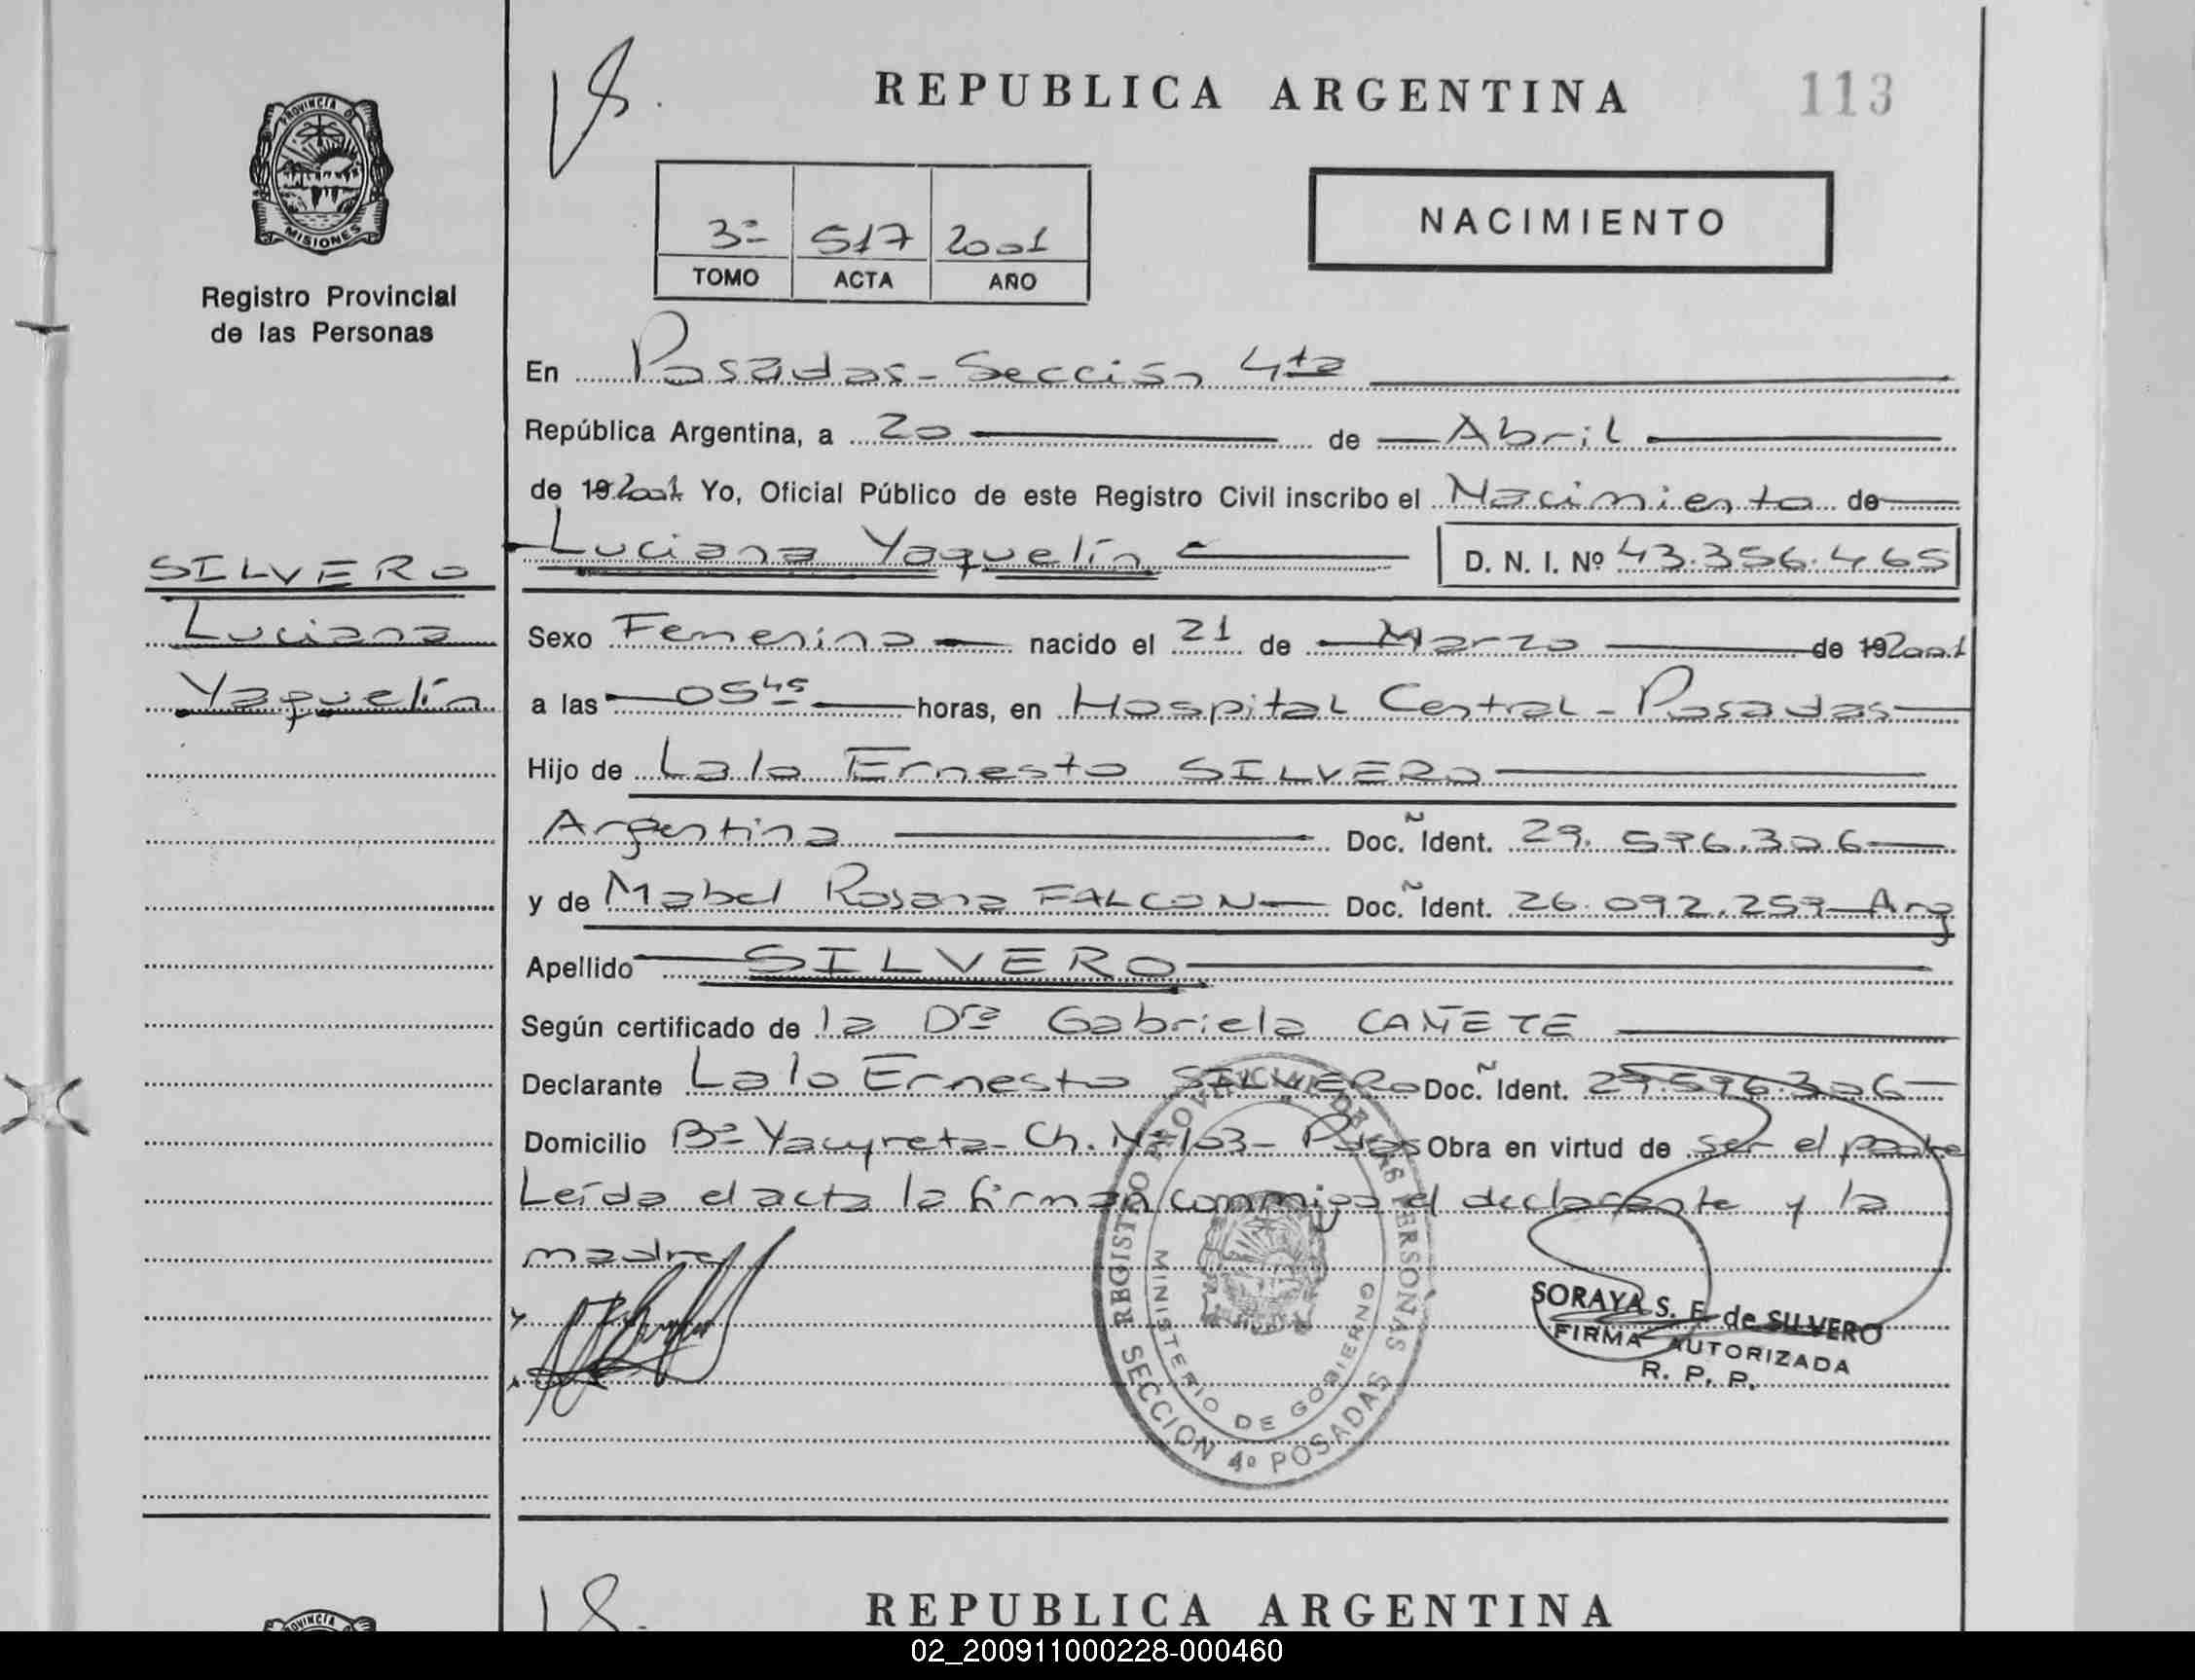 REPUBLICA ARGENTINA
113
PROVINCIA DE
MISIONES
Registro Provincial
de las Personas
3º 517 2001
TOMO ACTA AÑO
NACIMIENTO
En Posadas - Sección 4ta
República Argentina, a 20 de Abril
de 19 2001 Yo, Oficial Público de este Registro Civil inscribo el Nacimiento de
Luciana Yaquelín D. N. I. Nº 43.356.465
SILVERO
Luciana
Yaquelín
Sexo Femenino nacido el 21 de Marzo de 19 2001
a las 05 45 horas, en Hospital Central - Posadas
Hijo de Lalo Ernesto SILVERO
Argentina Doc. Ident. 29.596.306
y de Mabel Rosana FALCON Doc. Ident. 26.092.259 Arg
Apellido SILVERO
Según certificado de la Dra Gabriela CAÑETE
Declarante Lalo Ernesto SILVERO Doc. Ident. 29.596.306
Domicilio Bº Yacyreta - Ch. Nº 103 - Pdas Obra en virtud de ser el padre
Leída el acta la firman conmigo el declarante y la
madre
REGISTRO PROVINCIAL DE LAS PERSONAS
MINISTERIO DE GOBIERNO
SECCION 4º POSADAS
SORAYA S. F. de SILVERO
FIRMA AUTORIZADA
R. P. P.
REPUBLICA ARGENTINA
PROVINCIA
02_200911000228-000460